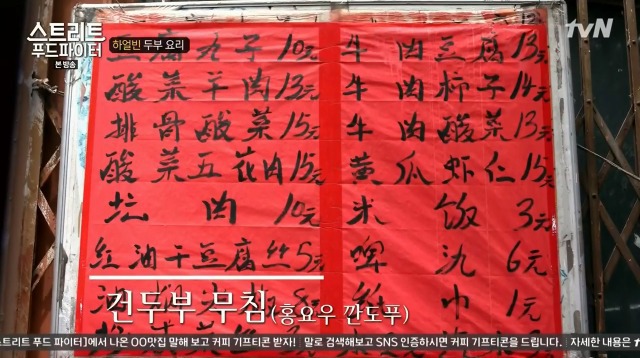 스트리트
푸드파이터
본 방송
하얼빈 두부 요리
tvN
腐丸子10元 牛肉豆腐13元
酸菜羊肉13元 牛肉柿子14元
排骨酸菜15元 牛肉酸菜13元
酸菜五花肉15元 黄瓜虾仁15元
坛肉10元 米饭3元
红油干豆腐丝5元 啤氿6元
巾1元
건두부 무침(홍요우 깐도푸)
스트리트 푸드 파이터]에서 나온 OO맛집 말해 보고 커피 기프티콘 받자! 말로 검색해보고 SNS 인증하시면 커피 기프티콘을 드립니다. 자세한 내용은